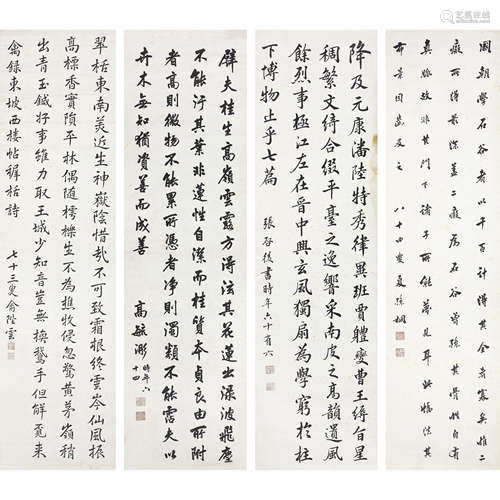 國朝學石谷者以千百計奚推二
癡所得最深蓋二癡為石谷曾孫其骨性自有
真脈故非其門下諸子所能夢見耳此幀依其
布景因及之 八十四叟夏孫桐
降及元康潘陸特秀律異班賈體變曹王縟旨星
稠繁文綺合綴平臺之逸響采南皮之高韻遺風
餘烈事極江左在晉中興玄風獨扇為學窮於柱
下博物止乎七篇 張書時年六十有六
辟夫桂生高嶺雲露方得泫其花蓮出淥波飛塵
不能汙其葉非蓮性自潔而桂質本貞良由所附
者高則微物不能累所憑者淨則濁類不能霑夫以
卉木無知猶資善而成善 高毓浵 時年六
十四
翠栝東南美近生神嶽陰惜哉不可致霜根絡雲岑仙風振
高標香實隕平林偶隨樗櫟生不為樵牧侵忽驚黃茅嶺稍
出青玉鍼好事雖力取王城少知音豈無換鵞手但解覓來
禽錄東坡西樓帖栝詩
七十三叟俞陛雲